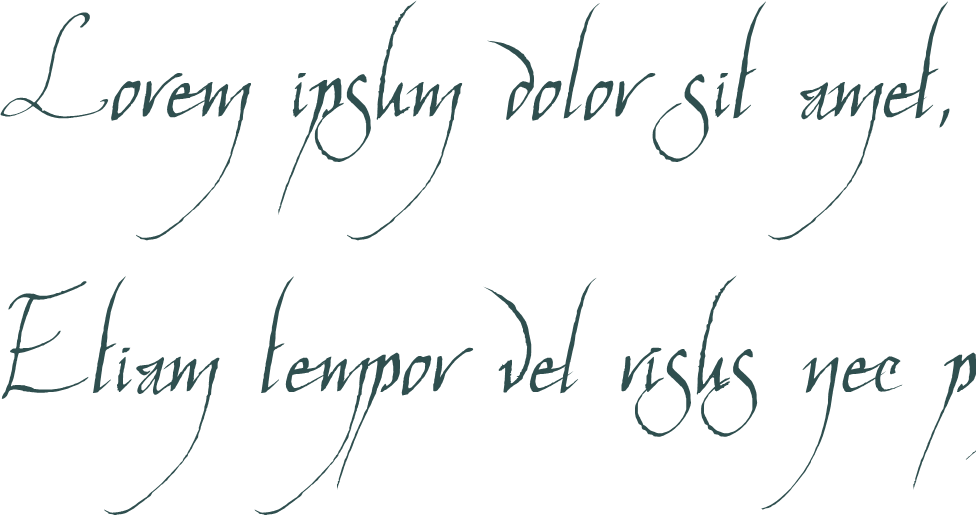 Lorem ipsum dolor sit amet,
Etiam tempor vel risus nec p